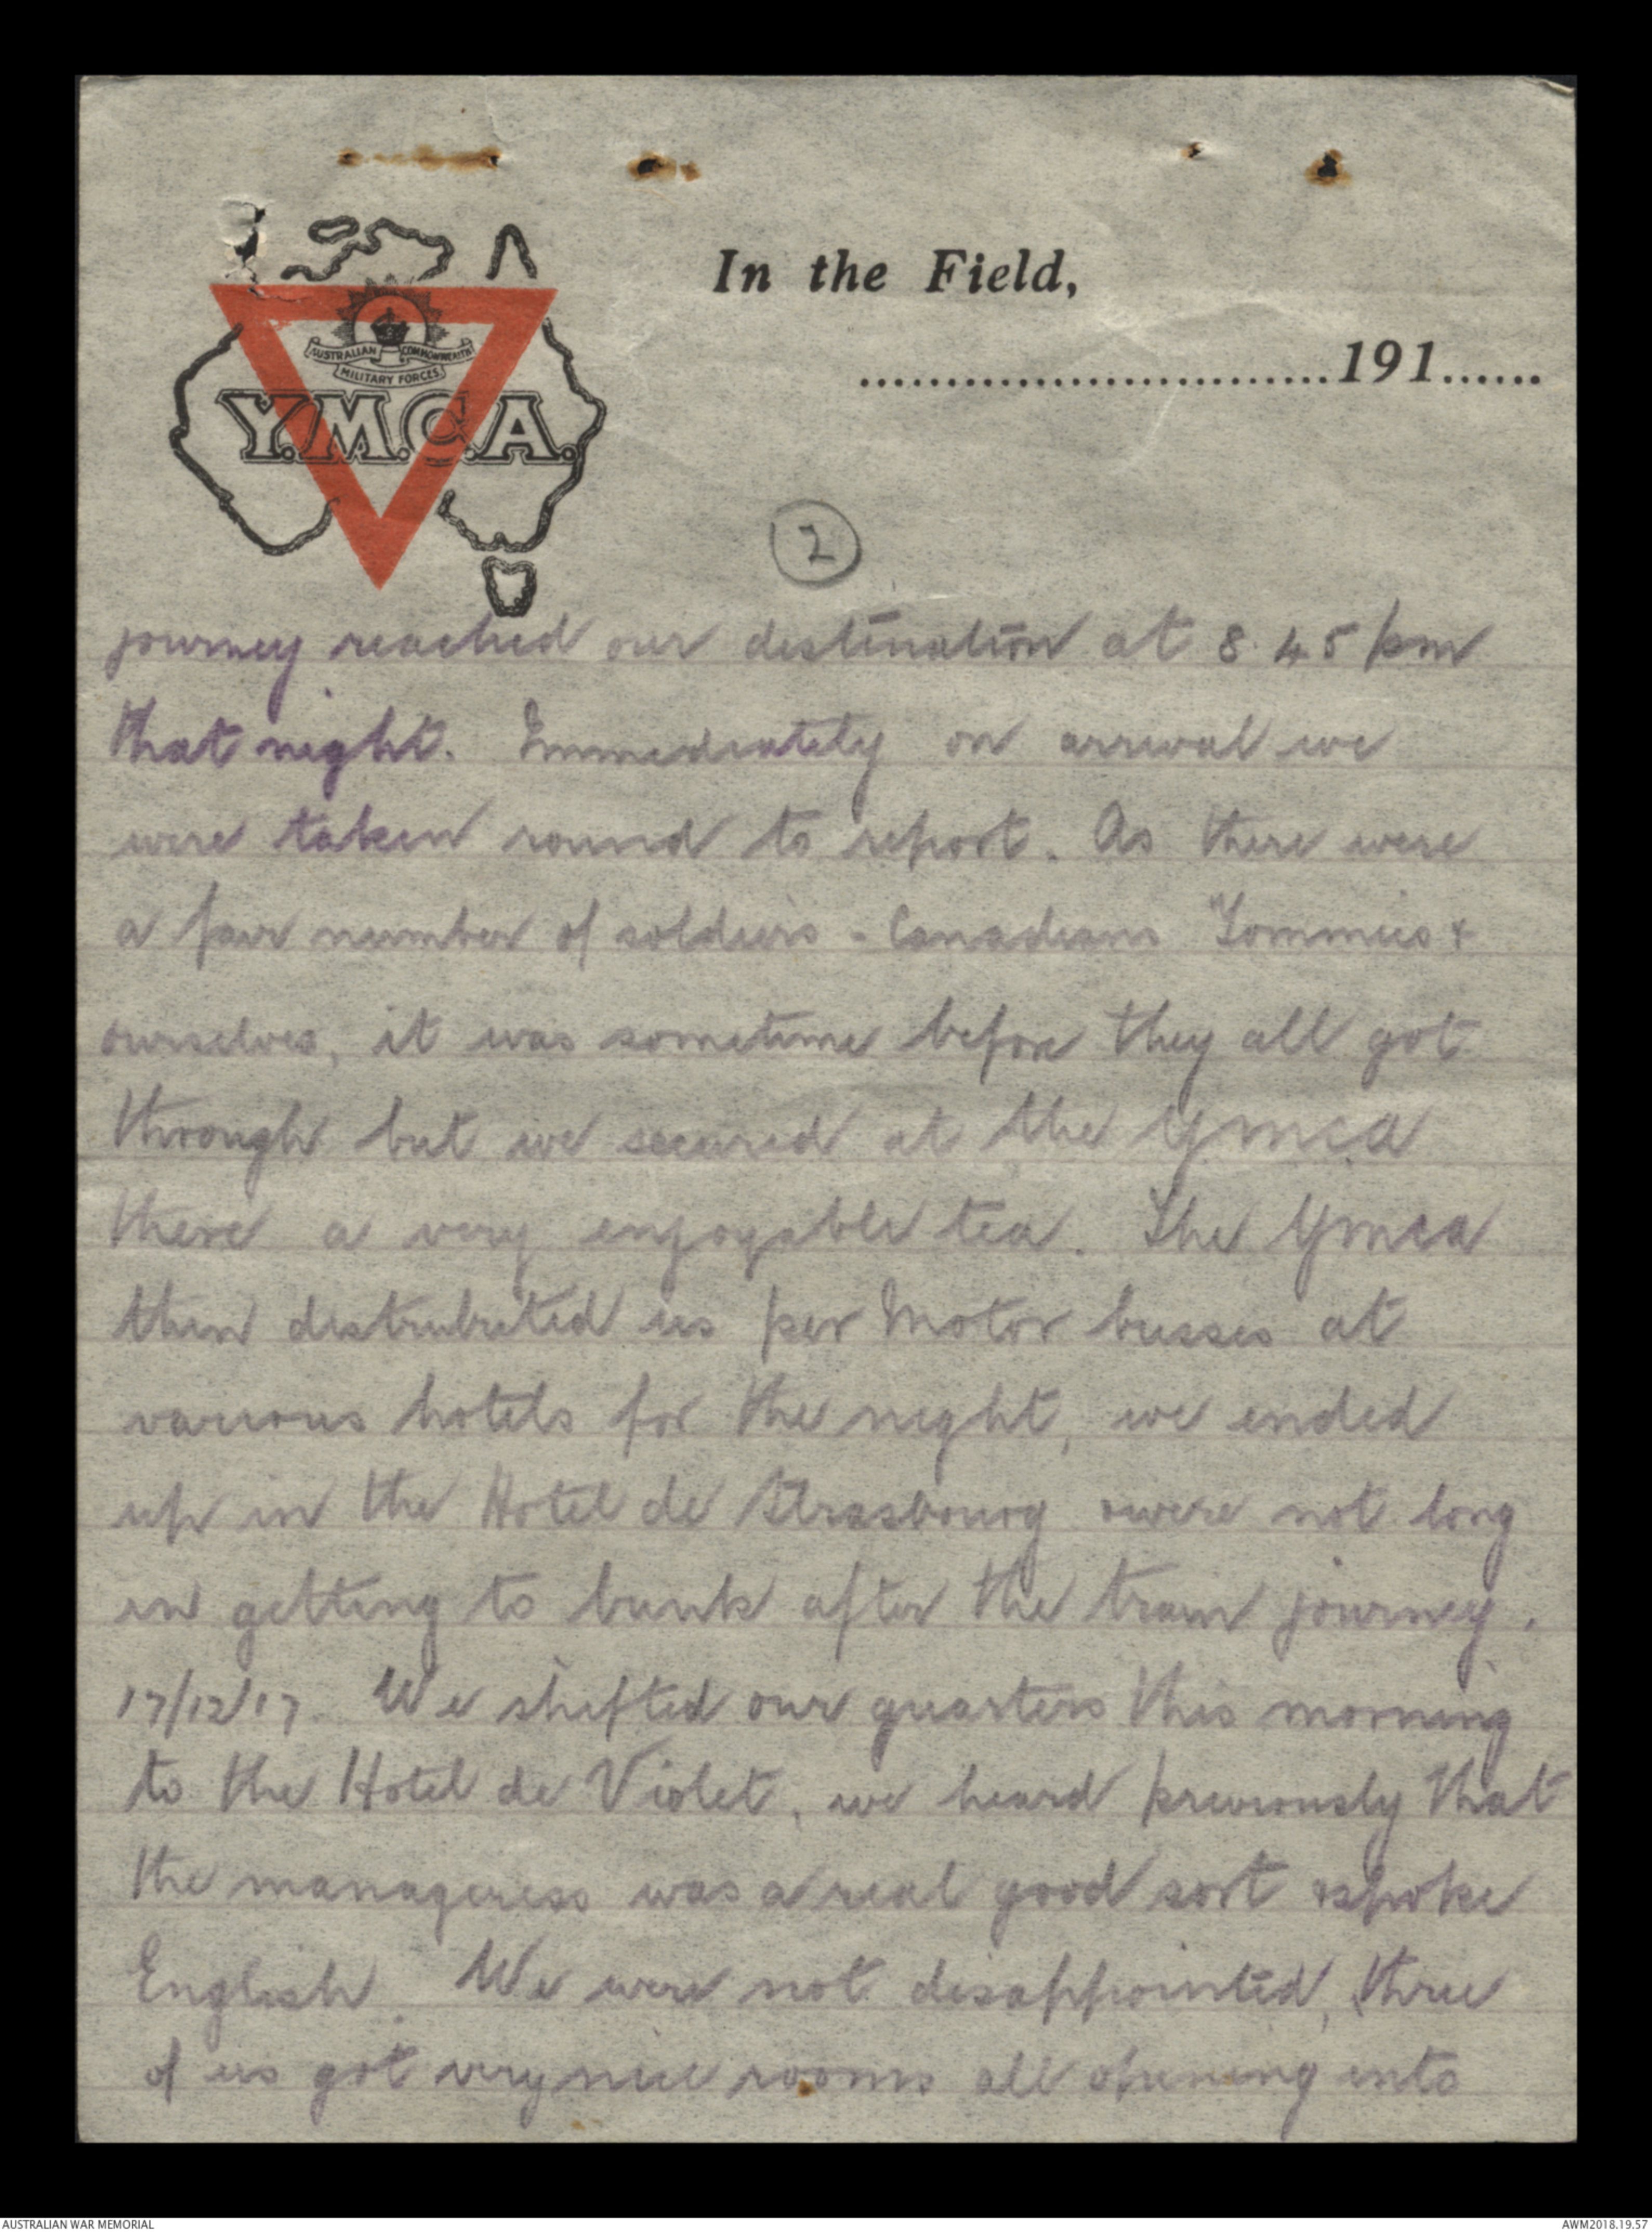 In the Field,
............................191......
AUSTRALIAN COMMONWEALTH
MILITARY FORCES
Y.M.C.A.
2
journey reached our destination at 8.45 pm
that night. Immediately on arrival we
were taken round to report. As there were
a fair number of soldiers - Canadians "Tommies &
ourselves, it was sometime before they all got
through but we secured at the YMCA
there a very enjoyable tea. The YMCA
then distributed us per Motor busses at
various hotels for the night, we ended
up in the Hotel de Strasbourg & were not long
in getting to bunk after the train journey.
17/12/17. We shifted our quarters this morning
to the Hotel de Violet, we heard previously that
the manageress was a real good sort & spoke
English. We were not disappointed, three
of us got very nice rooms all opening into
AUSTRALIAN WAR MEMORIAL
AWM2018.19.57